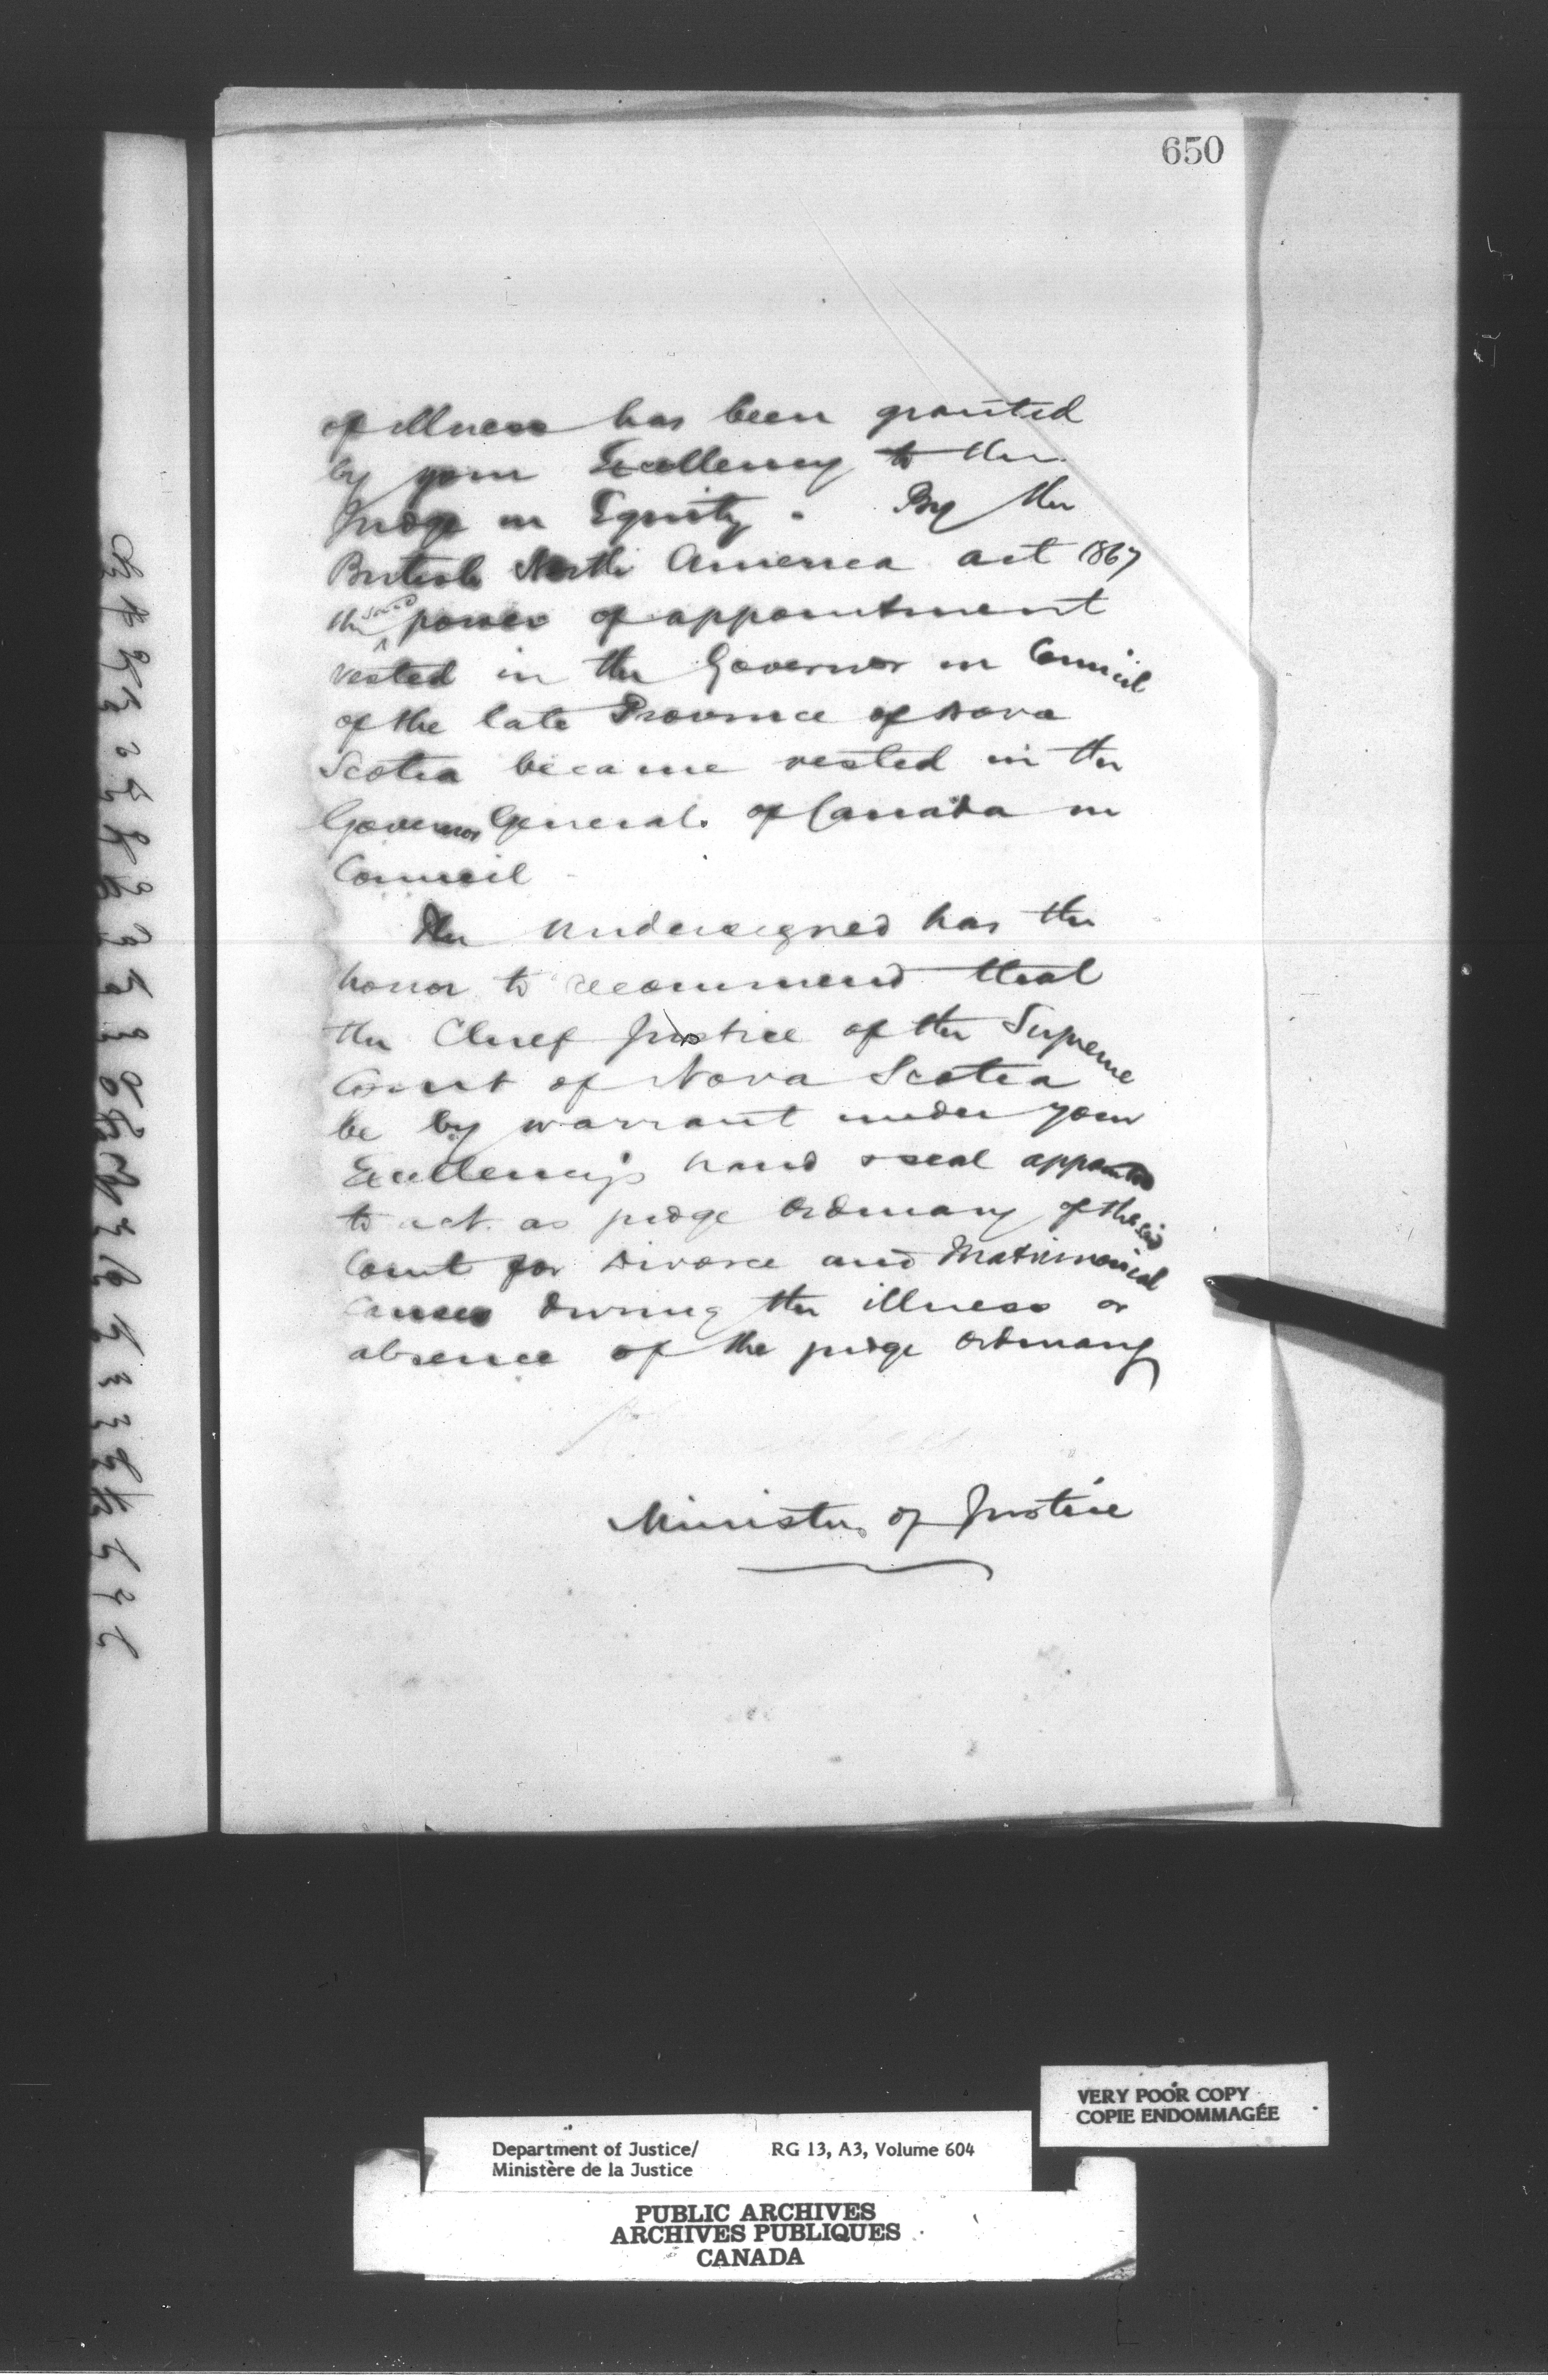 650
of illness has been granted
by your Excellency to the
Judge in Equity. By the
British North America act 1867
the said power of appointment
vested in the Governor in Council
of the late Province of Nova
Scotia became vested in the
Governor General. of Canada in
Council
The undersigned has the
honor to recommend that
the Chief Justice of the Supreme
Court of Nova Scotia
be by warrant under your
Excellency's hand & seal appointed
to act as judge Ordinary of the said
Court for Divorce and Matrimonial
causes during the illness or
absence of the judge Ordinary
Minister of Justice
VERY POOR COPY
COPIE ENDOMMAGÉE
Department of Justice/ RG 13, A3, Volume 604
Ministère de la Justice
PUBLIC ARCHIVES
ARCHIVES PUBLIQUES
CANADA